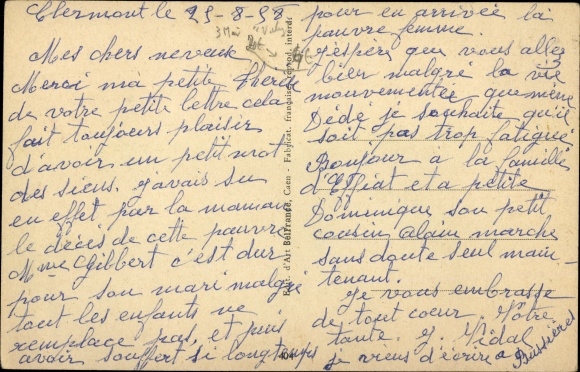 Clermont le 25-8-58
Mes chers neveux
Merci ma petite Thérèse
de votre petite lettre cela
fait toujours plaisir
d'avoir un petit mot
des siens. j'avais su
en effet par la maman
le décès de cette pauvre
Mme Gilbert c'est dur
pour son mari malgré
tout les enfants ne
remplace pas, et puis
avoir souffert si longtemps
Édit. d'Art BelFrance, Caen - Fabricat. française - Reprod. interdite
404
pour en arrivée là
pauvre femme.
j'espère que vous allez
bien malgré la vie
mouvementée que mène
Dédé je souhaite qu'il
soit pas trop fatigué
Bonjour à la famille
d'Effiat et a petite
Dominique son petit
cousin Alain marche
sans doute seul main-
tenant.
Je vous embrasse
de tout coeur. Votre
tante. J. Vidal
je viens d'écrire a Bussières